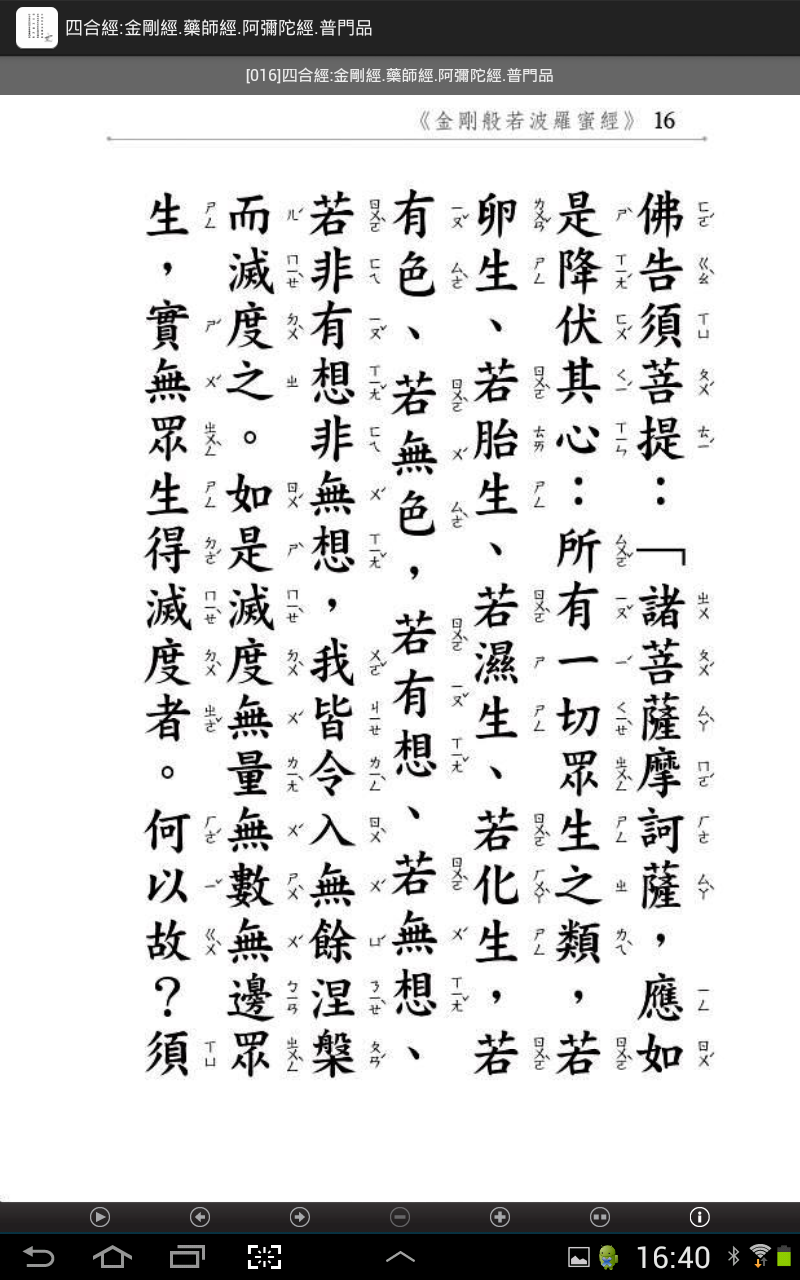 四合經:金剛經.藥師經.阿彌陀經.普門品
[016]四合經:金剛經.藥師經.阿彌陀經.普門品
《金剛般若波羅蜜經》 16
佛告須菩提：「諸菩薩摩訶薩，應如
是降伏其心：所有一切眾生之類，若
卵生、若胎生、若濕生、若化生，若
有色、若無色，若有想、若無想、
若非有想非無想，我皆令入無餘涅槃
而滅度之。如是滅度無量無數無邊眾
生，實無眾生得滅度者。何以故？須
16:40